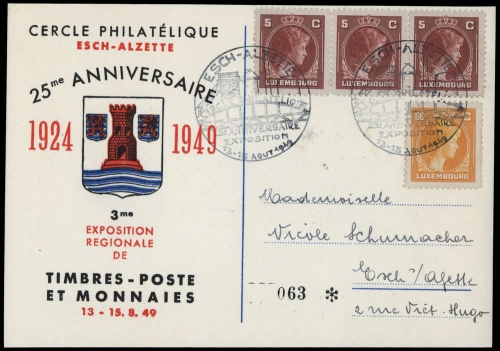 CERCLE PHILATÉLIQUE
ESCH-ALZETTE
25me ANNIVERSAIRE
1924 1949
3me
EXPOSITION
REGIONALE
DE
TIMBRES-POSTE
ET MONNAIES
13 - 15.8.49
5 C
LUXEMBOURG
5 C
LUXEMBOURG
5 C
LUXEMBOURG
LUXEMBOURG
ESCH-ALZETTE
ANNIVERSAIRE
EXPOSITION
13-15 AOUT 1949
ESCH-ALZETTE
ANNIVERSAIRE
EXPOSITION
13-15 AOUT 1949
Mademoiselle
Nicole Schumacher
Esch/Alzette
2 rue Vict. Hugo
063 *